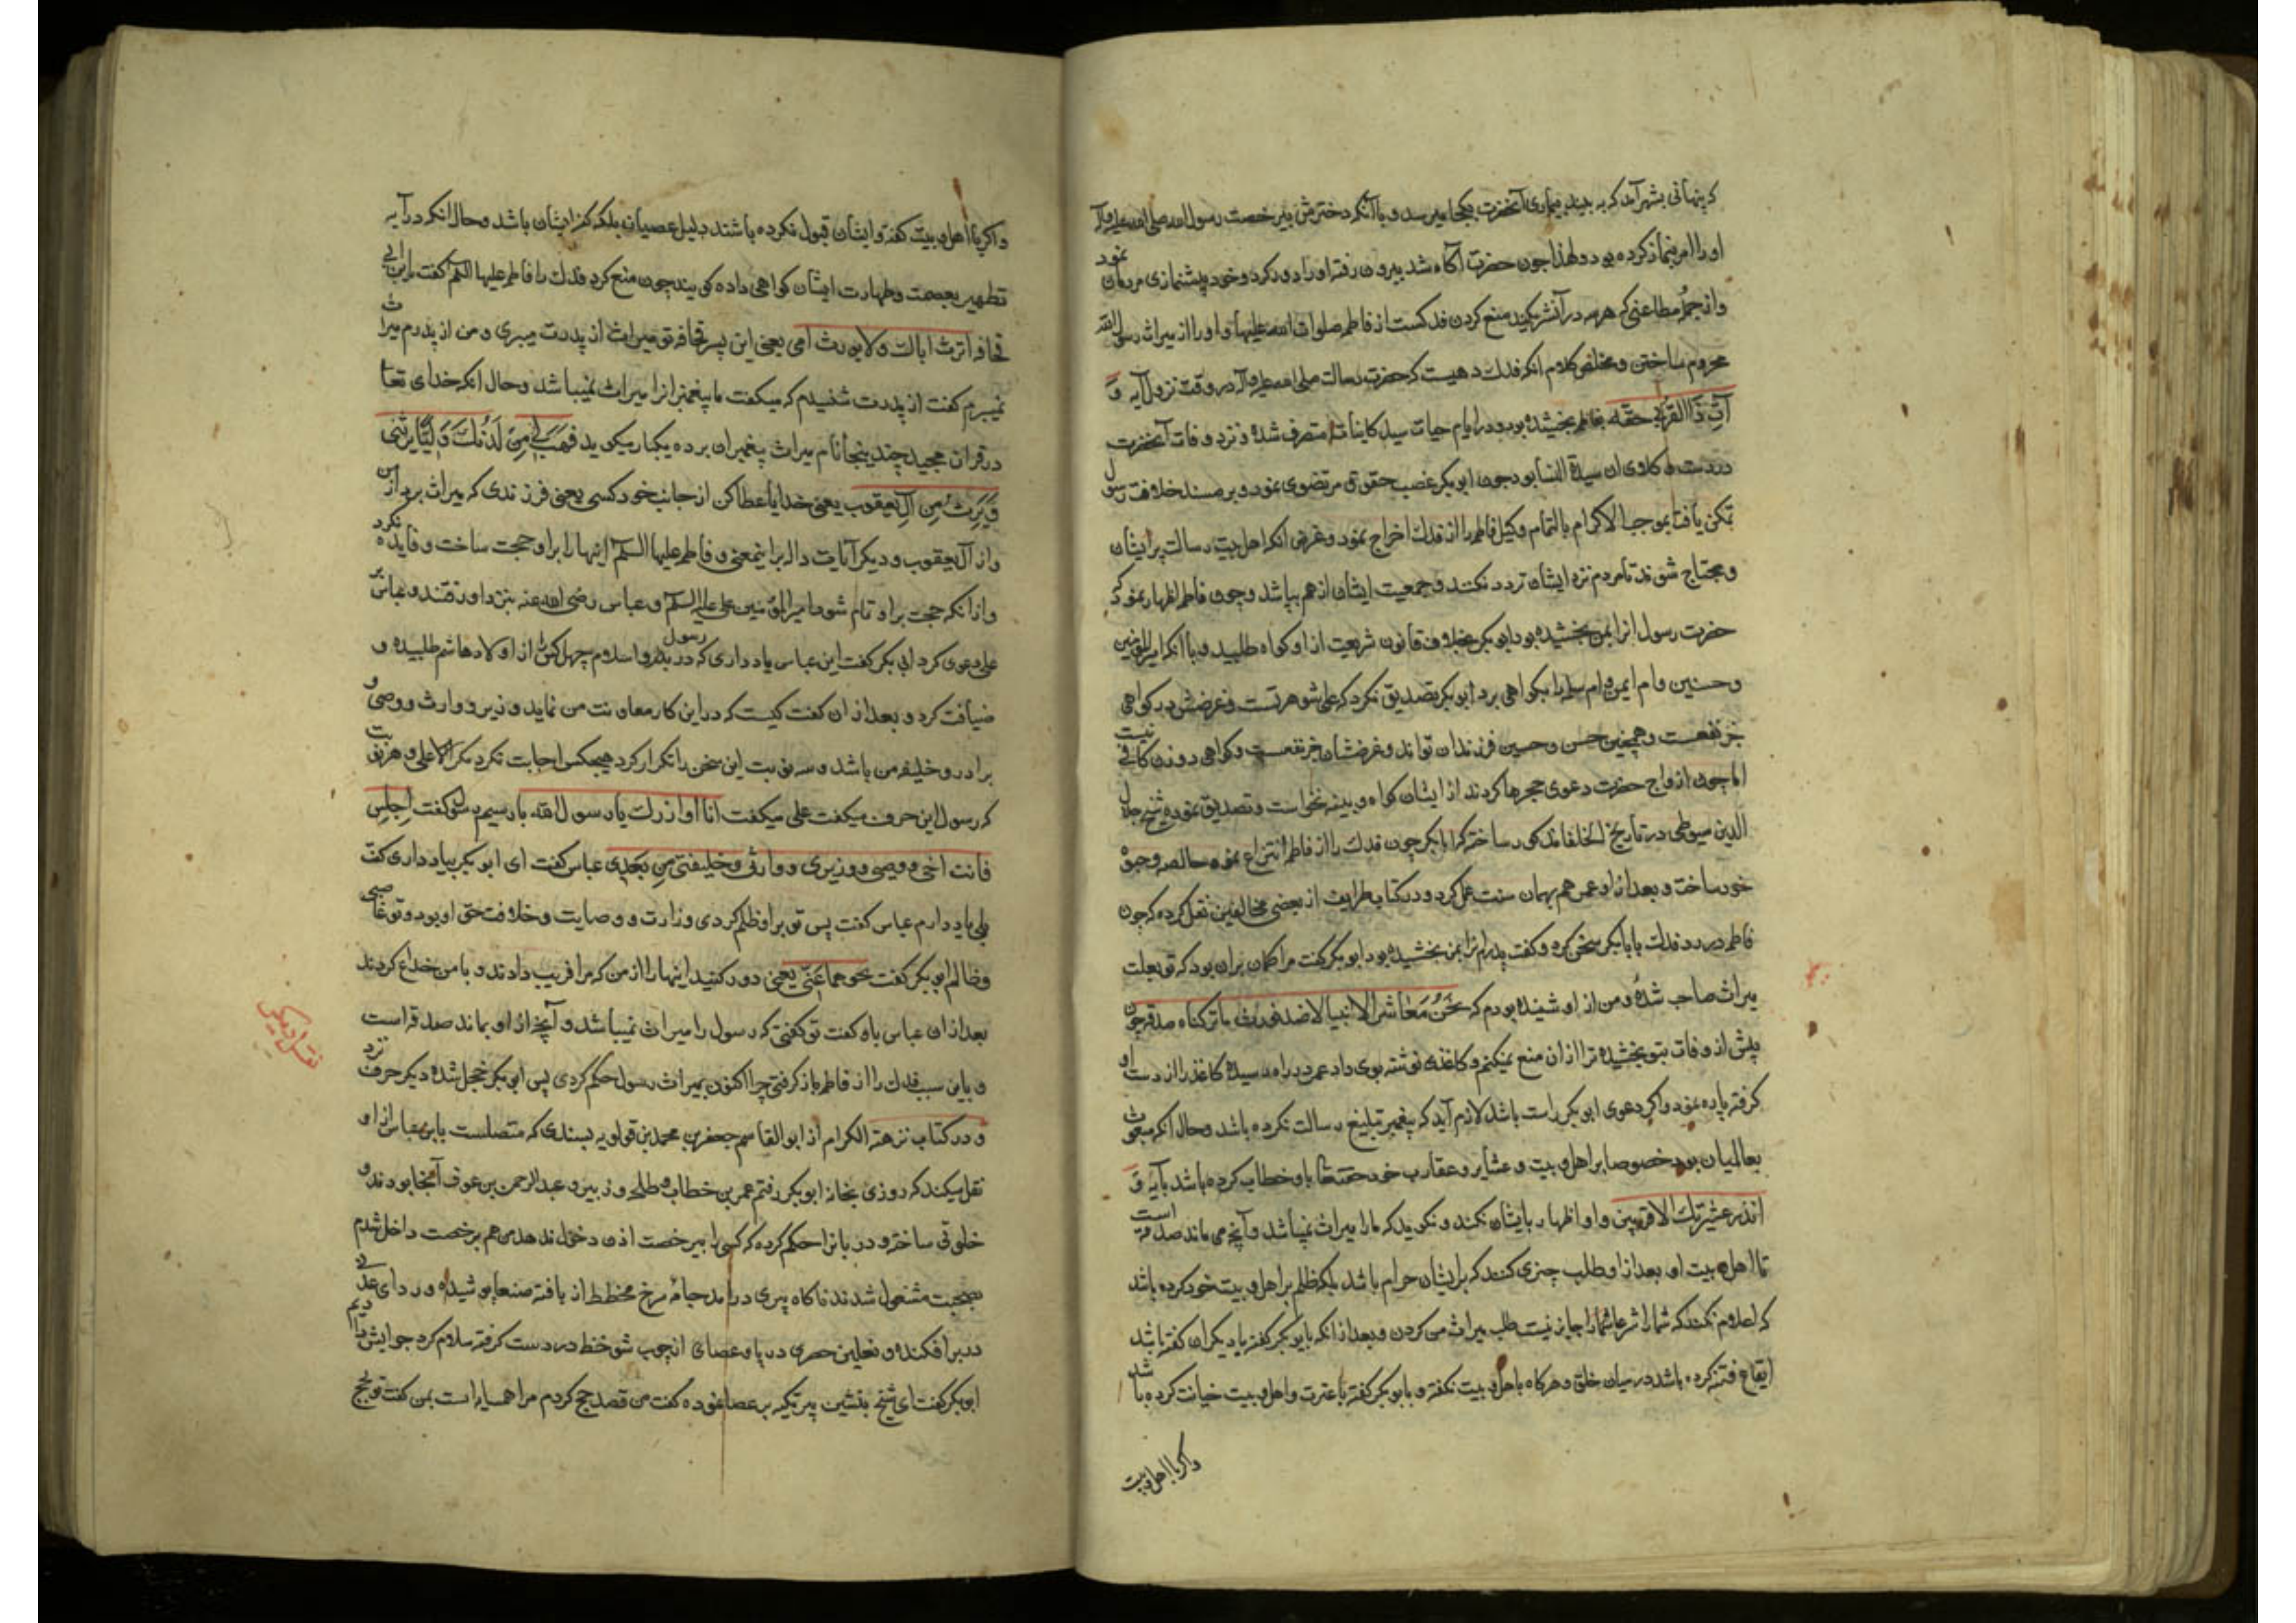 که پنهانی بشهر آمد که به بیند بیماری آنحضرت بکجا میرسد و باآنکه دخترش بیرخصت رسول الله صلی الله علیه و آله
او را امر بنماز کرده بود و لهذا چون حضرت آگاه شد بیرون رفته او را دور کرد و خود پیشنمازی مردمان نمود
و از جمله مطاعنی که هر سه در آن شریکند منع کردن فدکست از فاطمه صلوات الله علیها و او را از میراث رسول الله
محروم ساختن و مخلص کلام انکه فدک دهیست که حضرت رسالت صلی الله علیه و آله در وقت نزول آیه وَ
آتِ ذَا القُربی حقّه بفاطمه بخشیده بود و در ایام حیات سید کاینات متصرف شده و نزد وفات آنحضرت
در دست وکلاوی ان سیدة النسا بود چون ابو بکر غصب حقوق مرتضوی نمود و بر مسند خلافت رسول
تمکن یافت بموجب الاکرام بالتمام وکیل فاطمه را از فدک اخراج نمود و غرض انکه اهل بیت رسالت پریشان
و محتاج شوند تا مردم نزد ایشان تردد نکنند و جمعیت ایشان از هم بپاشد و چون فاطمه اظهار نمود که
حضرت رسول انرا بمن بخشیده بود ابو بکر بخلاف قانون شریعت از او کواه طلبید و با انکه امیرالمؤمنین
و حسنین و ام ایمن و ام سلمه را بکواهی برد ابو بکر تصدیق نکرد که علی شوهر تست و غرضش در کواهی
جر نفعست و همچنین حسن و حسین فرزندان تو اند و غرضشان جر نفعست و کواهی دو زن کافی نیست
اما چون ازواج حضرت دعوی حجرها کردند از ایشان کواه و بینه نخواست و تصدیق نمود و شیخ جلال
الدین سیوطی در تاریخ الخلفا مذکور ساخته که ابا بکر چون فدک را از فاطمه انتزاع نموده خالصه وجوه
خود ساخت و بعد از او عمر هم بهمان سنت عمل کرد و در کتاب طرایف از بعضی مخالفین نقل کرده که چون
فاطمه در رد فدک بابابکر سخن کرد و کفت پدرم انرا بمن بخشیده بود ابو بکر کفت مرا کمان بران بود که تو بعلت
میراث صاحب شدهٔ و من از او شنیده بودم که نَحنُ مَعاشر الانبیا لا نورث ما ترکناه صدقه چون
پیش از وفات بتو بخشیده ترا از ان منع نمیکنم و کاغذی نوشته بوی داد عمر در راه بسیده کاغذ را از دست او
کرفته پاره نمود و اکر دعوی ابو بکر راست باشد لازم آید که پیغمبر تبلیغ رسالت نکرده باشد و حال آنکه مبعوث
بعالمیان بود خصوصا بر اهل بیت و عشایر و عقارب خود حقتعالی باو خطاب کرده باشد بآیه وَ
انذر عشیرتک الاقربین و او اظهار بایشان نکند و نکوید که ما را میراث نمیباشد و آنچه می ماند صدقه است
تا اهل بیت او بعد از او طلب چیزی کنند که بر ایشان حرام باشد بلکه ظلم بر اهل بیت خود کرده باشد
که اعلام نکند که شما را شرعا شما را جایز نیست طلب میراث من کردن و بعد از انکه بابو بکر کفته یا دیکران کفته باشد
ایقاع فتنه کرده باشد در میان خلق و هرکاه باهل بیت نکفته و بابو بکر کفته با عترت و اهل بیت خیانت کرده باشد
واکر با اهل بیت
واکر با اهل بیت کفته و ایشان قبول نکرده باشند دلیل عصیان بلکه کفر ایشان باشد و حال انکه در آیه
تطهیر بعصمت و طهارت ایشان کواهی داده کویند چون منع کرد فدک را فاطمه علیها السلم کفت یا ابن ابی
قحافه اترث اباک و لا یورث امی یعنی این پسر قحافه تو میراث از پدرت میبری و من از پدرم میراث
نمیبرم کفت از پدرت شنیدم که میکفت ما پیغمبرانرا میراث نمیباشد و حال انکه خدای تعا
در قران مجید چند ینجا نام میراث پغمبران برده یکبار میکوید فَهَب لی مِن لَدُنکَ وَلِیًّا یرثنی
وَیَرِثُ مِن آلِ یعقوب یعنی خدایا عطا کن از جانب خود کسی یعنی فرزندی که میراث برد از من
و از آل یعقوب و دیکر آیات دال بر اینمعنی و فاطمه علیها السلم اینها را بر او حجت ساخت و فایده نکرد
و از انکه حجت بر او تمام شود امیرالمؤمنین علی علیه السلم و عباس رضی الله عنه بنزد او رفتند و عباس بر
علی دعوی کرد ابی بکر کفت این عباس یاد داری که در بدو اسلام رسول چهل کس را از اولاد هاشم طلبیده و
ضیافت کرد و بعد از ان کفت کیست که در این کار معاونت من نماید و وزیر و وارث و وصی و
برادر و خلیفه من باشد و سه نوبت این سخن را تکرار کرد هیچکس اجابت نکرد مکر الاعلی و هر نوبت
که رسول این حرف میکفت علی میکفت انا اوازرک یا رسول الله بار سیم رسول کفت اِجلِس
فانت اخی و وصیی و وزیری و وارثی و خلیفتی مِن بَعدِی عباس کفت ای ابو بکر بیاد داری کفت
بلی یاد دارم عباس کفت پس تو بر او ظلم کردی وزارت و وصایت و خلافت حق او بود و تو غاصبی
و ظالم ابو بکر کفت نحوهما عَنّی یعنی دور کنید اینها را از من که مرا فریب دادند و با من خداع کردند
بعد از ان عباس باو کفت تو کفتی که رسول را میراث نمیباشد و آنچه از او بماند صدقه است
و باین سبب فدک را از فاطمه باز کرفتی چرا اکنون بمیراث رسول حکم کردی پس ابی بکر خجل شده دیکر حرف نزد
و در کتاب نزهة الکرام از ابو القاسم جعفر بن محمد بن قولویه بسندی که متصلست بابن عباس از او
نقل میکند که روزی بخانه ابو بکر رفتم عمر بن خطاب و طلحه و زبیر و عبد الرحمن بن عوف آنجا بودند و
خلوتی ساخته و دربانرا حکم کرده که کسی را بیرخصت اذن دخول ندهد من هم برخصت داخل شدم
بصحبت مشغول شدند ناکاه پیری در امد جامهٔ سرخ مخطط از بافته صنعا پوشیده و ردای عدنی
در بر افکنده و نعلین حصری در پا و عصای از چوب شوخط در دست کرفته سلام کرد جوابش دادیم
ابو بکر کفت ای شیخ بنشین پیر تکیه بر عصا نموده کفت من قصد حج کردم مرا همسایه است بمن کفت تو بحج